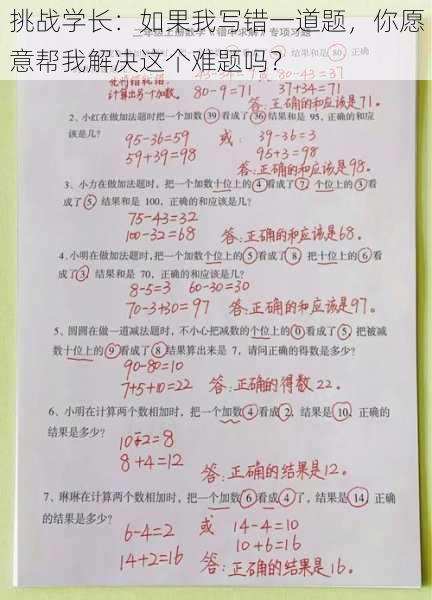 挑战学长：如果我写错一道题，你愿
意帮我解决这个难题吗？
80-9=71 37+34=71
计算出另一个加数.
答：正确的和应该是71。
2、小红在做加法题时把一个加数 39 看成了 36 结果和是 95, 正确的和应
该是几?
95-36=59 或: 39-36=3
59+39=98 95+3=98
答:正确的和应该是98。
3、小方在做加法题时，把一个加数十位上的 4 看成了 7, 个位上的 3 看
成了 5, 结果和是 100, 正确的和应该是几?
75-43=32
100-32=68 答:正确的和应该是68。
4、小明在做加法题时，把一个加数个位上的 5 看成了 8, 把十位上的 6 看
成了 3, 结果和是 70, 正确的和应该是几?
8-5=3 60-30=30
70-3+30=97 答:正确的和应该是97。
5、圆圆在做一道减法题时，不小心把减数的个位上的 0 看成了 5, 把被减
数十位上的 9 看成了 8 结果算出来是 7, 请问正确的得数是多少?
90-80=10
7+5+10=22 答:正确的得数22。
6、小明在计算两个数相加时，把一个加数 4 看成 2, 结果是 10, 正确的
结果是多少?
10-2=8
8+4=12 答:正确的结果是12。
7、琳琳在计算两个数相加时，把一个加数 6 看成 4 了，结果是 14, 正确
的结果是多少?
6-4=2 或 14-4=10
14+2=16 10+6=16
答:正确的结果是16。